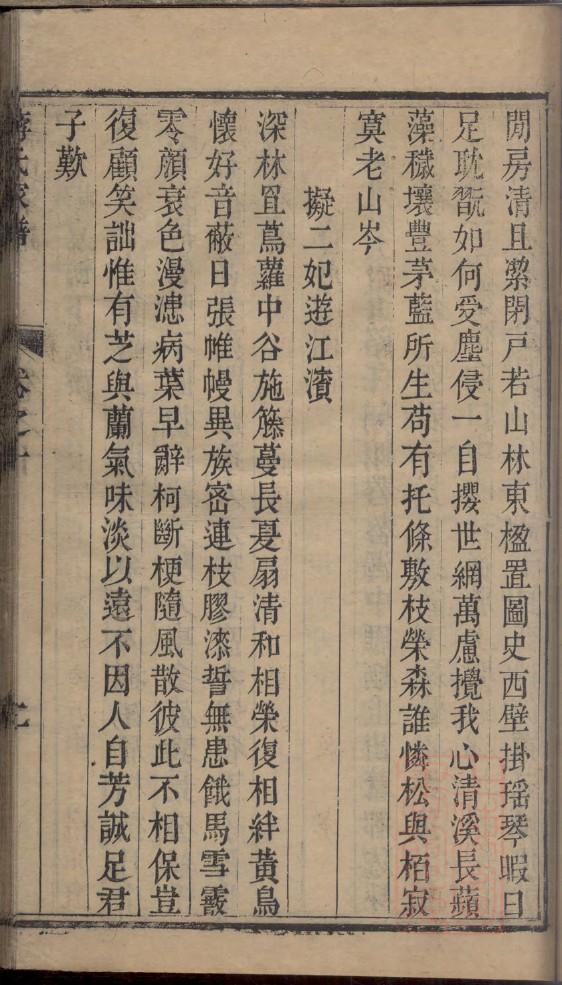 閒房清且潔閉戸若山林東楹置圖史西壁掛瑶琴暇日
足耽翫如何受塵侵一自攖世網萬慮攪我心清溪長蘋
藻穢壤豐茅藍所生苟有托條敷枝榮森誰憐松與栢寂
寞老山岑
擬二妃遊江濱
深林罝蔦蘿中谷施籐蔓長夏扇清和相榮復相絆黄鳥
懷好音蔽日張帷幔異族密連枝膠漆誓無患餓馬雪霰
零顔衰色漫漶病葉早辭柯斷梗隨風散彼此不相保豈
復顧笑訕惟有芝與蘭氣味淡以遠不因人自芳誠足君
子歎
氏家譜
卷之十